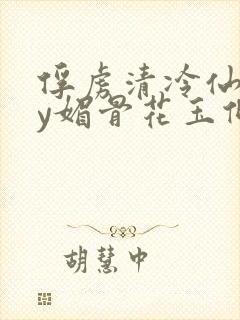 俘虏清冷仙
y媚骨花玉
胡慧中